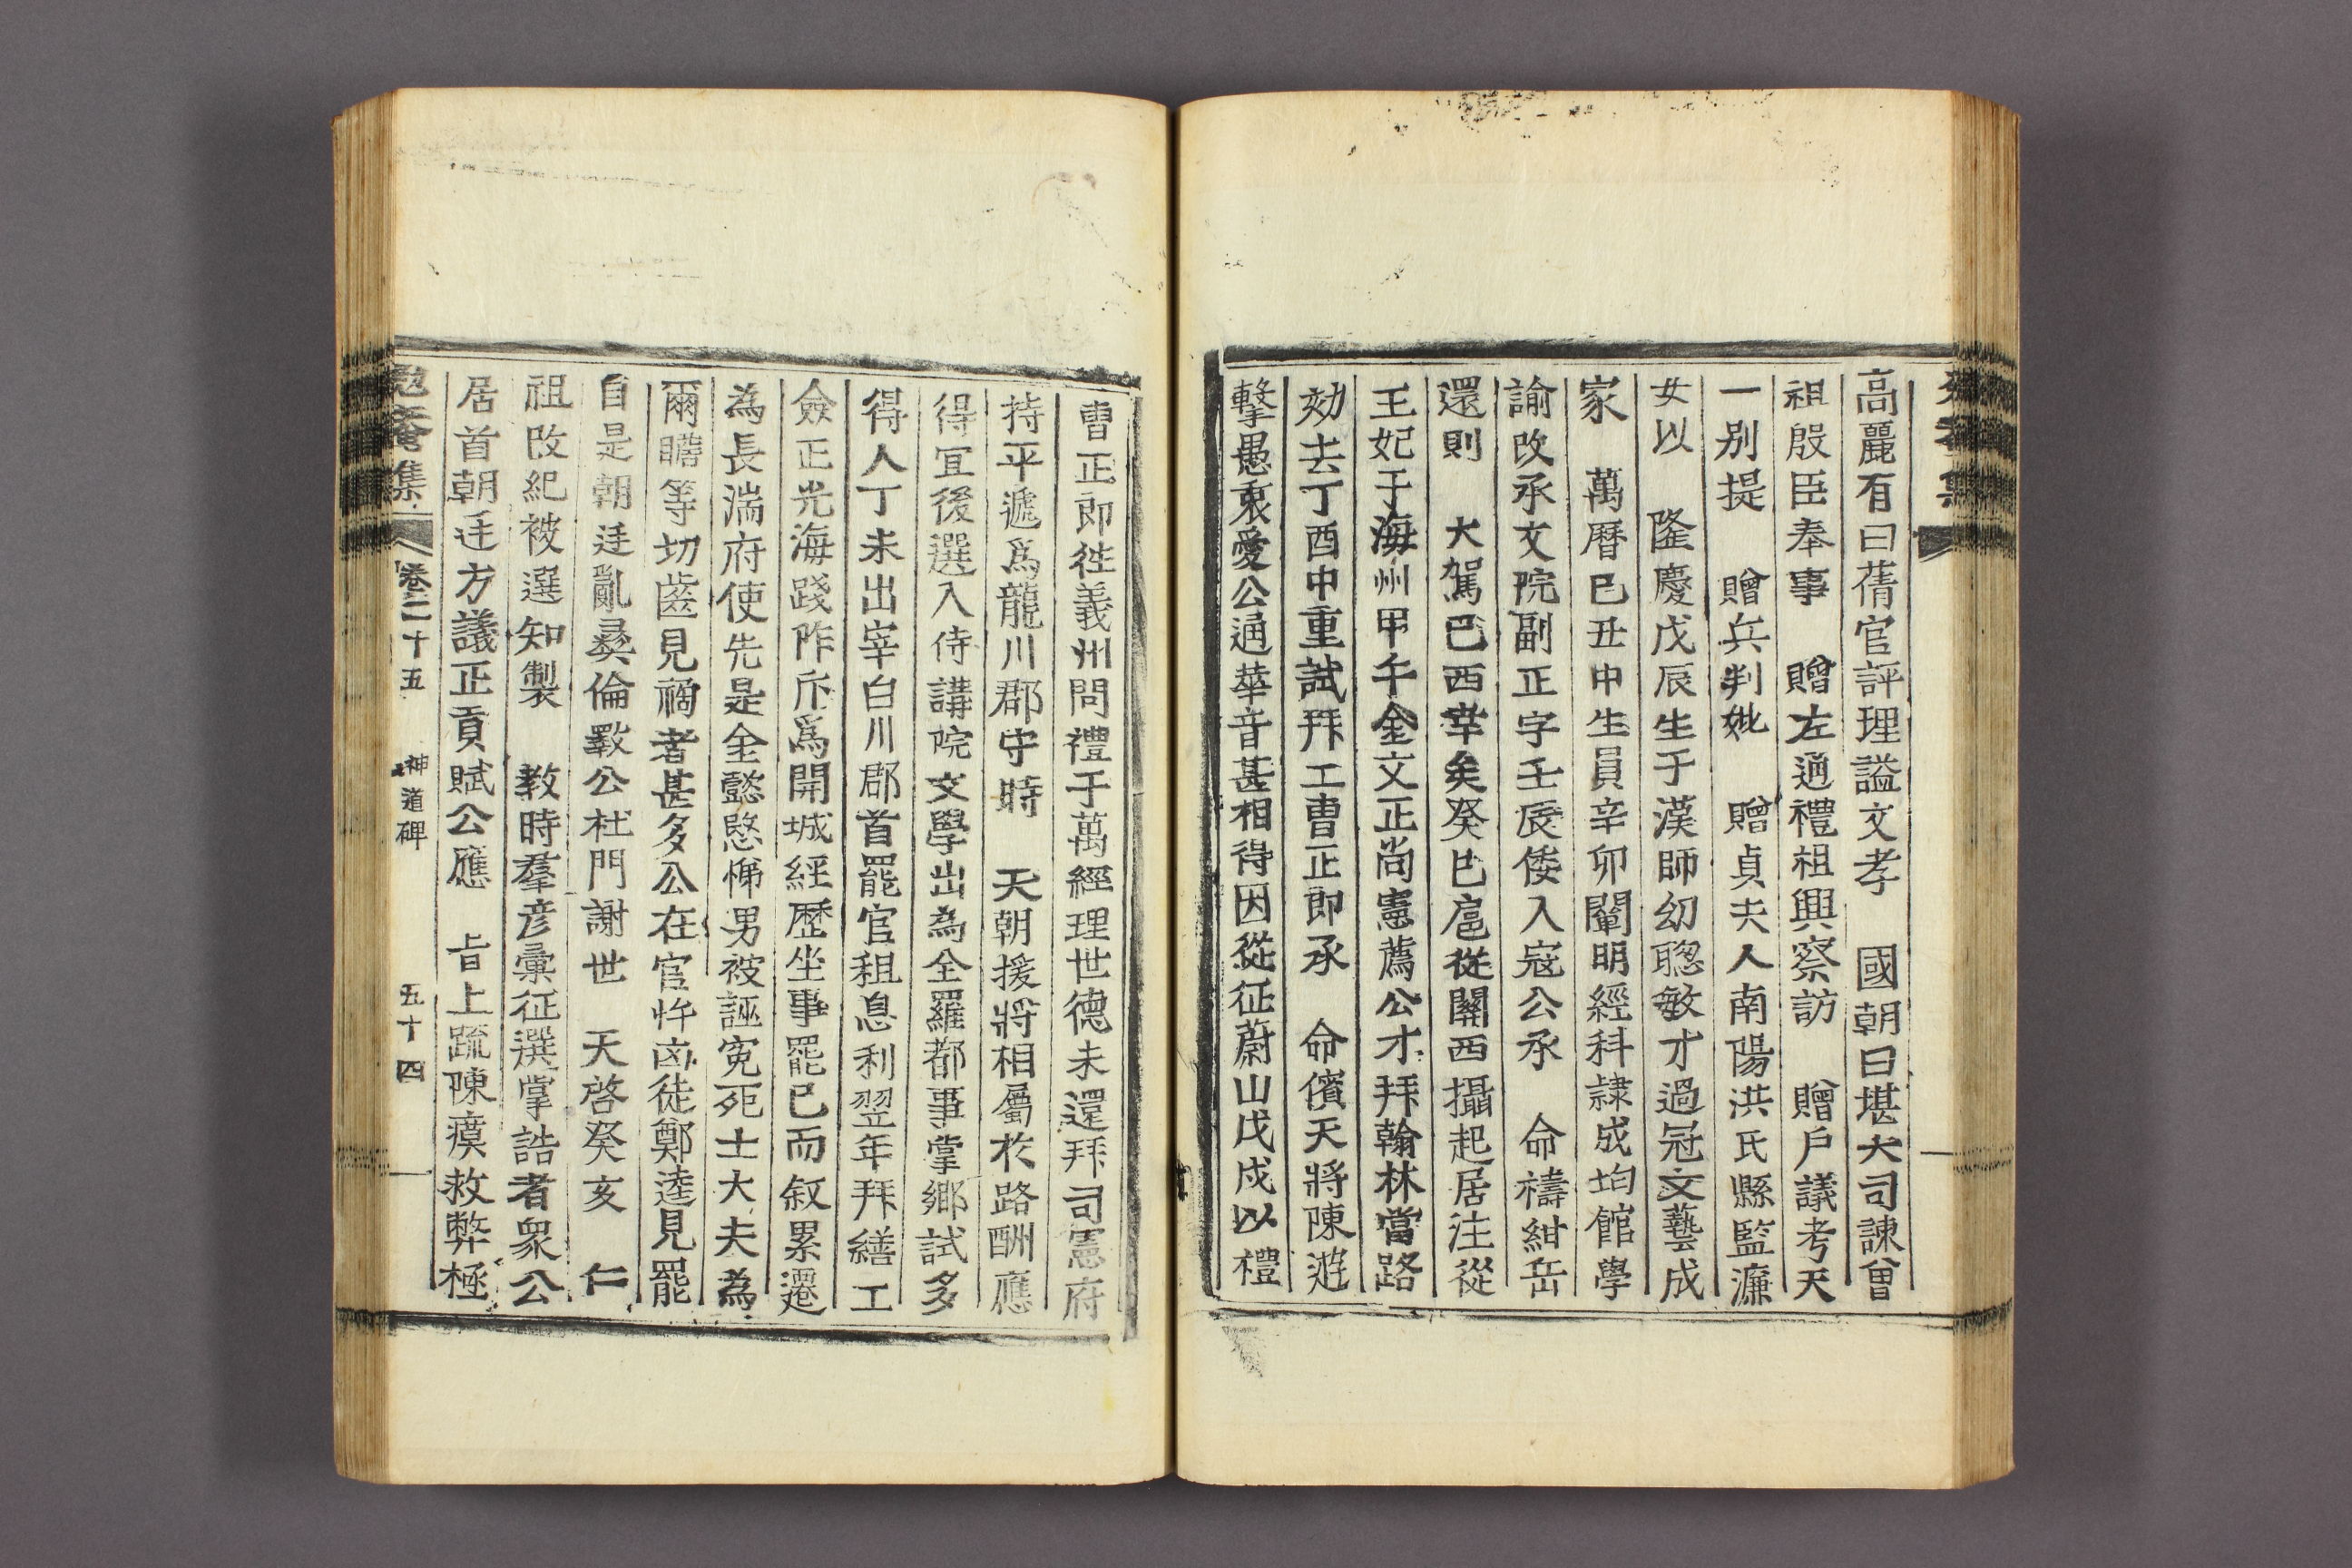 高麗有曰蒨官評理謚文孝 國朝曰堪大司諫曾
祖殷臣奉事 贈左通禮祖興察訪 贈戶議考天
一別提 贈兵判妣 贈貞夫人南陽洪氏縣監濂
女以 隆慶戊辰生于漢師幼聰敏才過冠文藝成
家 萬曆己丑中生員辛卯闡明經科隷成均館學
諭改承文院副正字壬辰倭入寇公承 命禱紺岳
還則 大駕已西幸矣癸巳扈從關西攝起居注從
王妃于海州甲午金文正尚憲薦公才拜翰林當路
劾去丁酉中重試拜工曹正郎承 命儐天將陳遊
擊愚衷愛公通華音甚相得因從征蔚山戊戌以禮
曹正郎徃義州問禮于萬經理世德未還拜司憲府
持平遞爲龍川郡守時 天朝援將相屬於路酬應
得宜後選入侍講院文學出為全羅都事掌鄉試多
得人丁未出宰白川郡首罷官租息利翌年拜繕工
僉正光海踐阼斥爲開城經歷坐事罷已而叙累遷
為長湍府使先是金懿愍悌男被誣寃死士大夫為
爾瞻等切齒見禍者甚多公在官忤凶徒鄭逵見罷
自是朝廷亂彛倫斁公杜門謝世 天啓癸亥 仁
祖改紀被選知製 教時羣彦彙征選掌誥者衆公
居首朝廷方議正貢賦公應 旨上疏陳瘼救弊極
勉菴集 卷二十五 神道碑 五十四